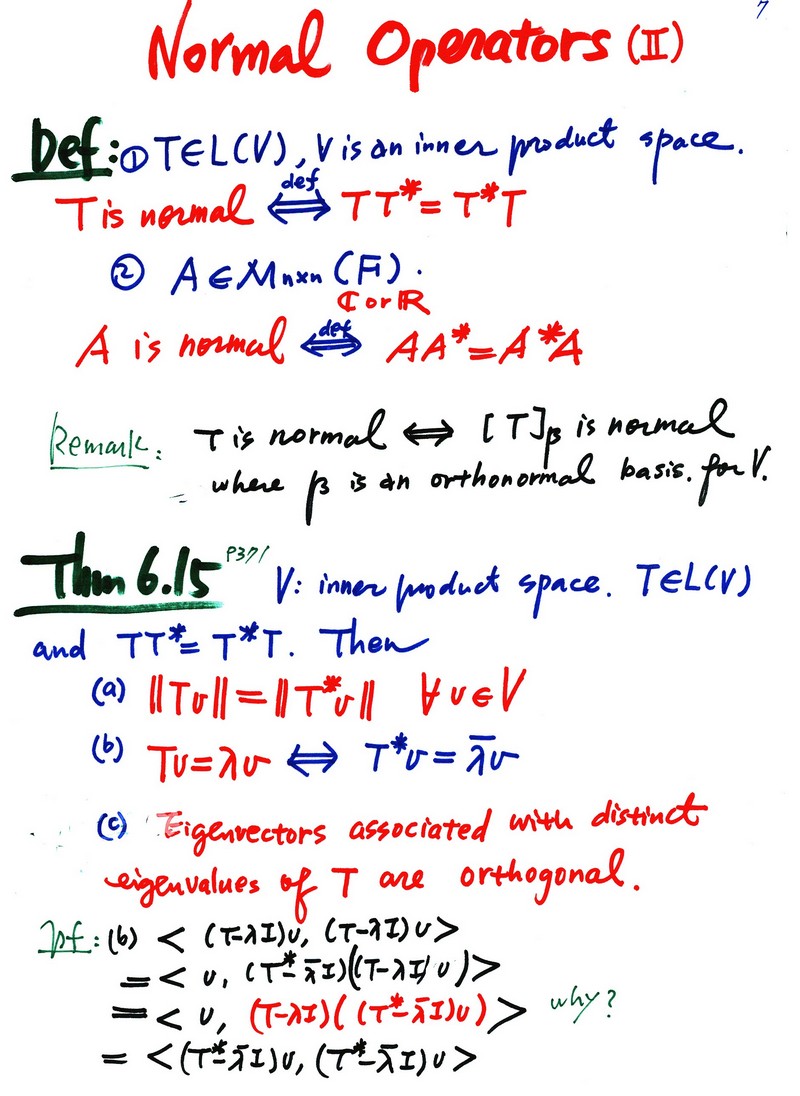 7
Normal Operators (II)
Def: ① T∈L(V), V is an inner product space.
T is normal ⇔ def TT* = T*T
② A ∈ Mn×n (F).
ℂ or ℝ
A is normal ⇔ def AA* = A*A
Remark: T is normal ⇔ [T]β is normal
where β is an orthonormal basis. for V.
Thm 6.15 P371 V: inner product space. T∈L(V)
and TT* = T*T. Then
(a) ‖Tv‖ = ‖T*v‖ ∀ v ∈ V
(b) Tv = λv ⇔ T*v = λ̄v
(c) Eigenvectors associated with distinct
eigenvalues of T are orthogonal.
pf: (b) < (T-λI)v, (T-λI)v >
= < v, (T*-λ̄I)((T-λI)v) >
= < v, (T-λI)((T*-λ̄I)v) > why?
= < (T*-λ̄I)v, (T*-λ̄I)v >